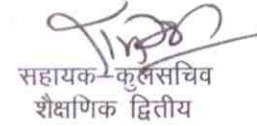 सहायक कुलसचिव
शैक्षणिक द्वितीय